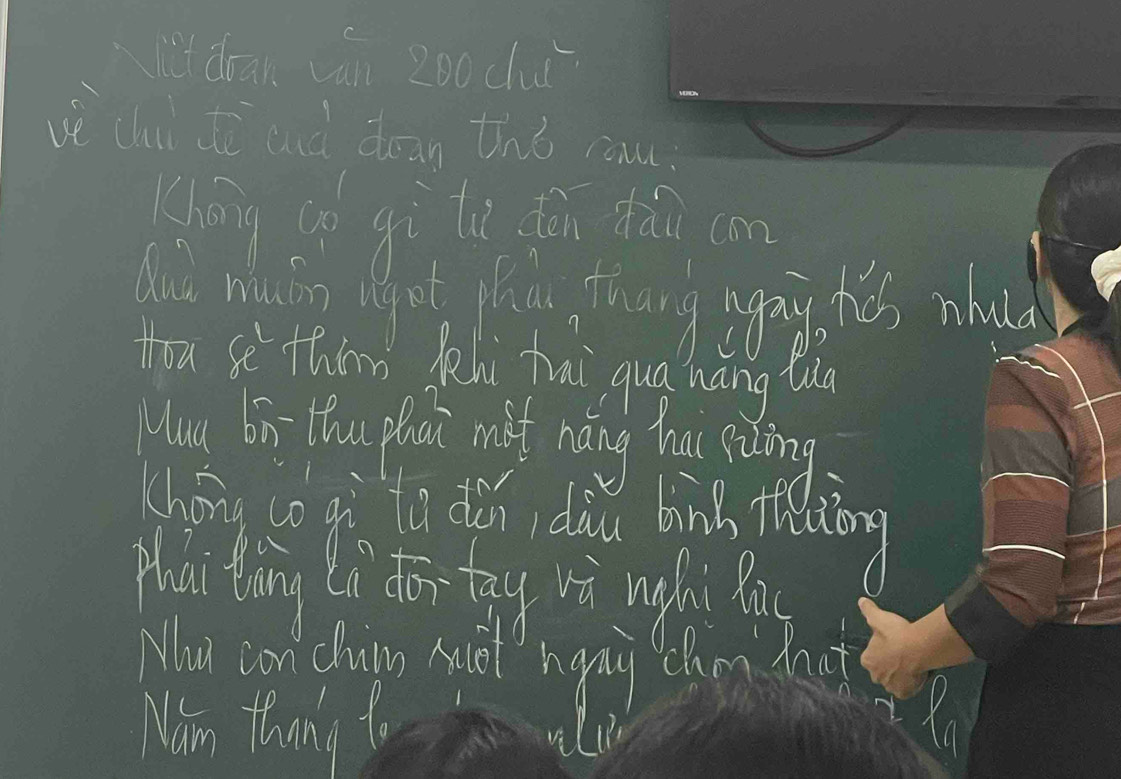 Viết đoạn văn 200 chữ
về chủ đề của đoạn thơ sau:
Không có gì tự đến đâu con
Quả muốn ngọt phải tháng ngày tích nhựa
Hoa sẽ thơm khi trải qua nắng lửa
Mùa bội thu phải một nắng hai sương
Không có gì tự đến, dẫu bình thường
Phải bằng cả đôi tay và nghị lực
Như con chim suốt ngày chọn hạt
Năm tháng